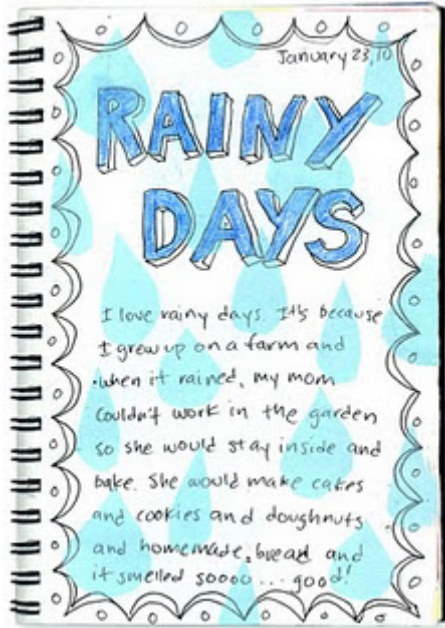 January 23, 10
RAINY
DAYS
I love rainy days. It's because
I grew up on a farm and
when it rained, my mom
couldn't work in the garden
so she would stay inside and
bake. She would make cakes
and cookies and doughnuts
and homemade bread and
it smelled soooo... good!